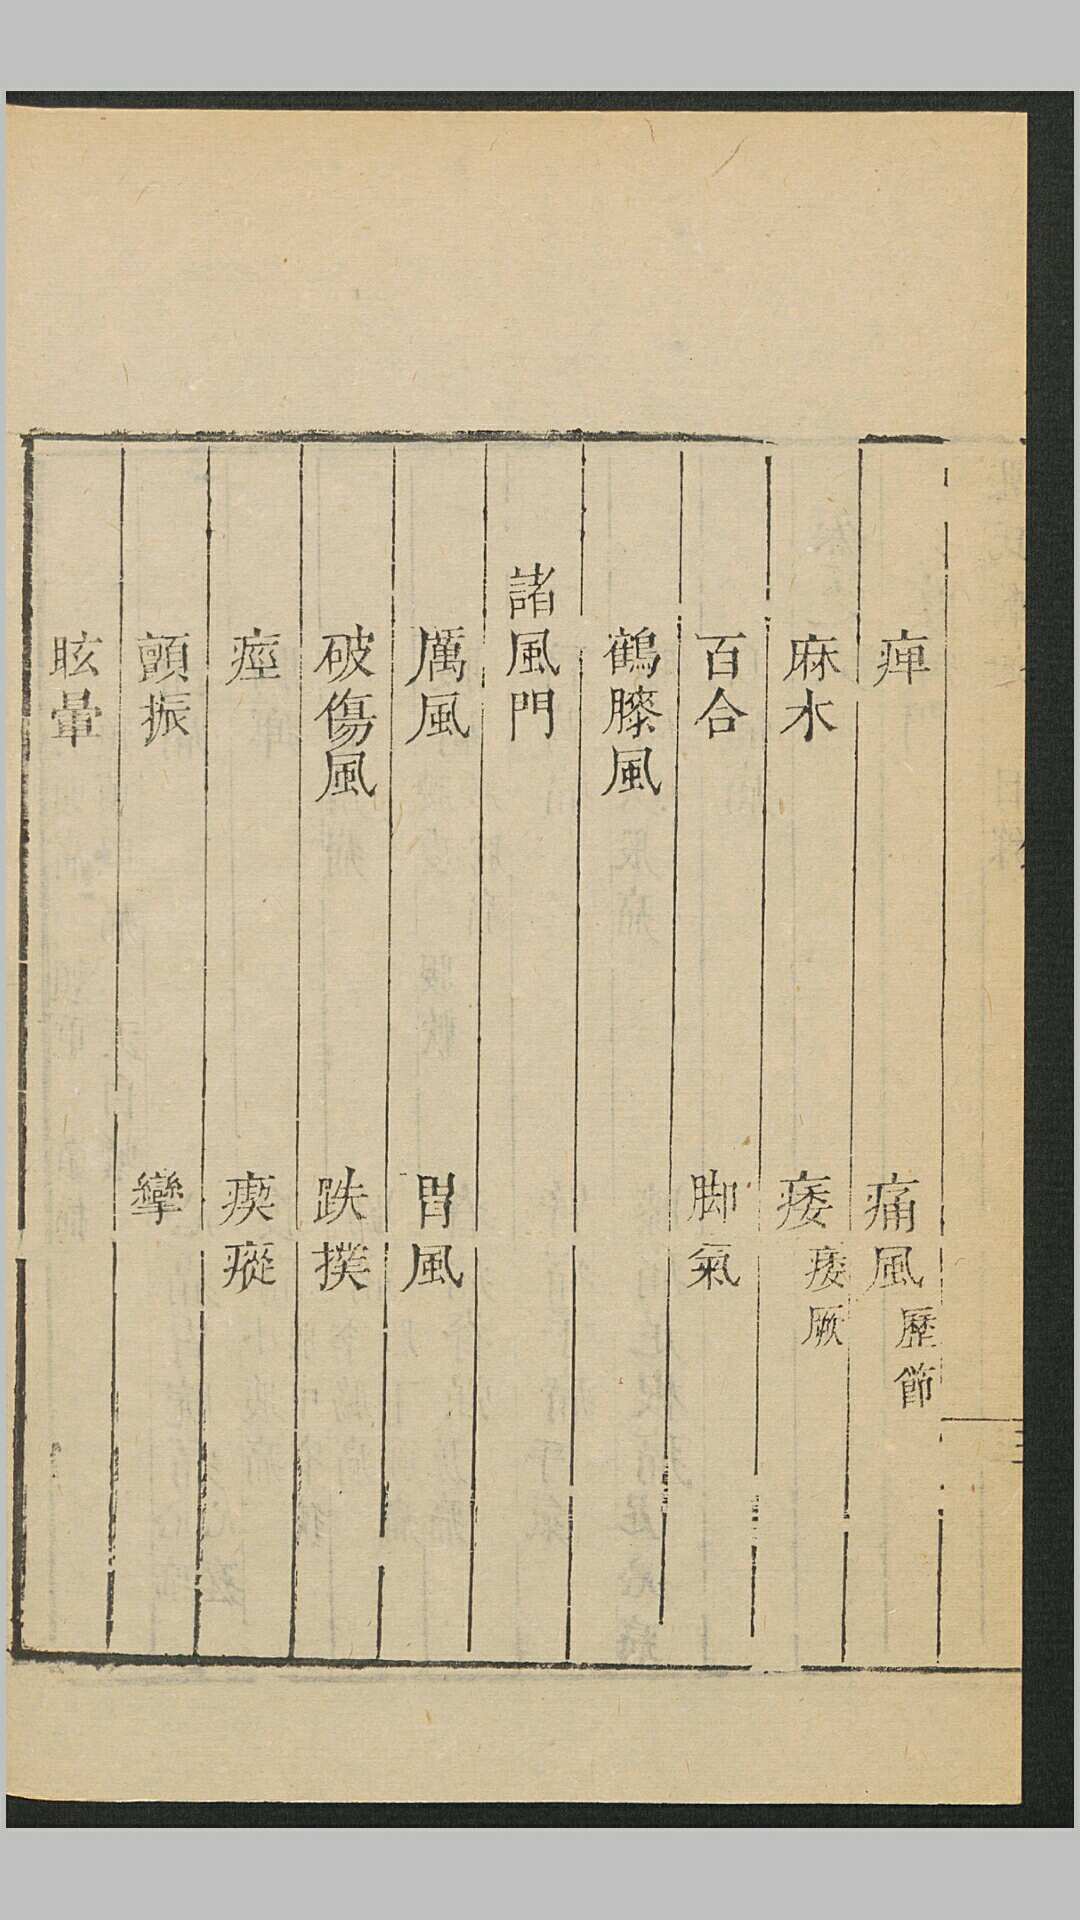 痺　痛風歷節
麻木　痿痿厥
百合　脚氣
鶴膝風
諸風門
厲風　胃風
破傷風　跌撲
痙　瘈瘲
顫振　攣
眩暈